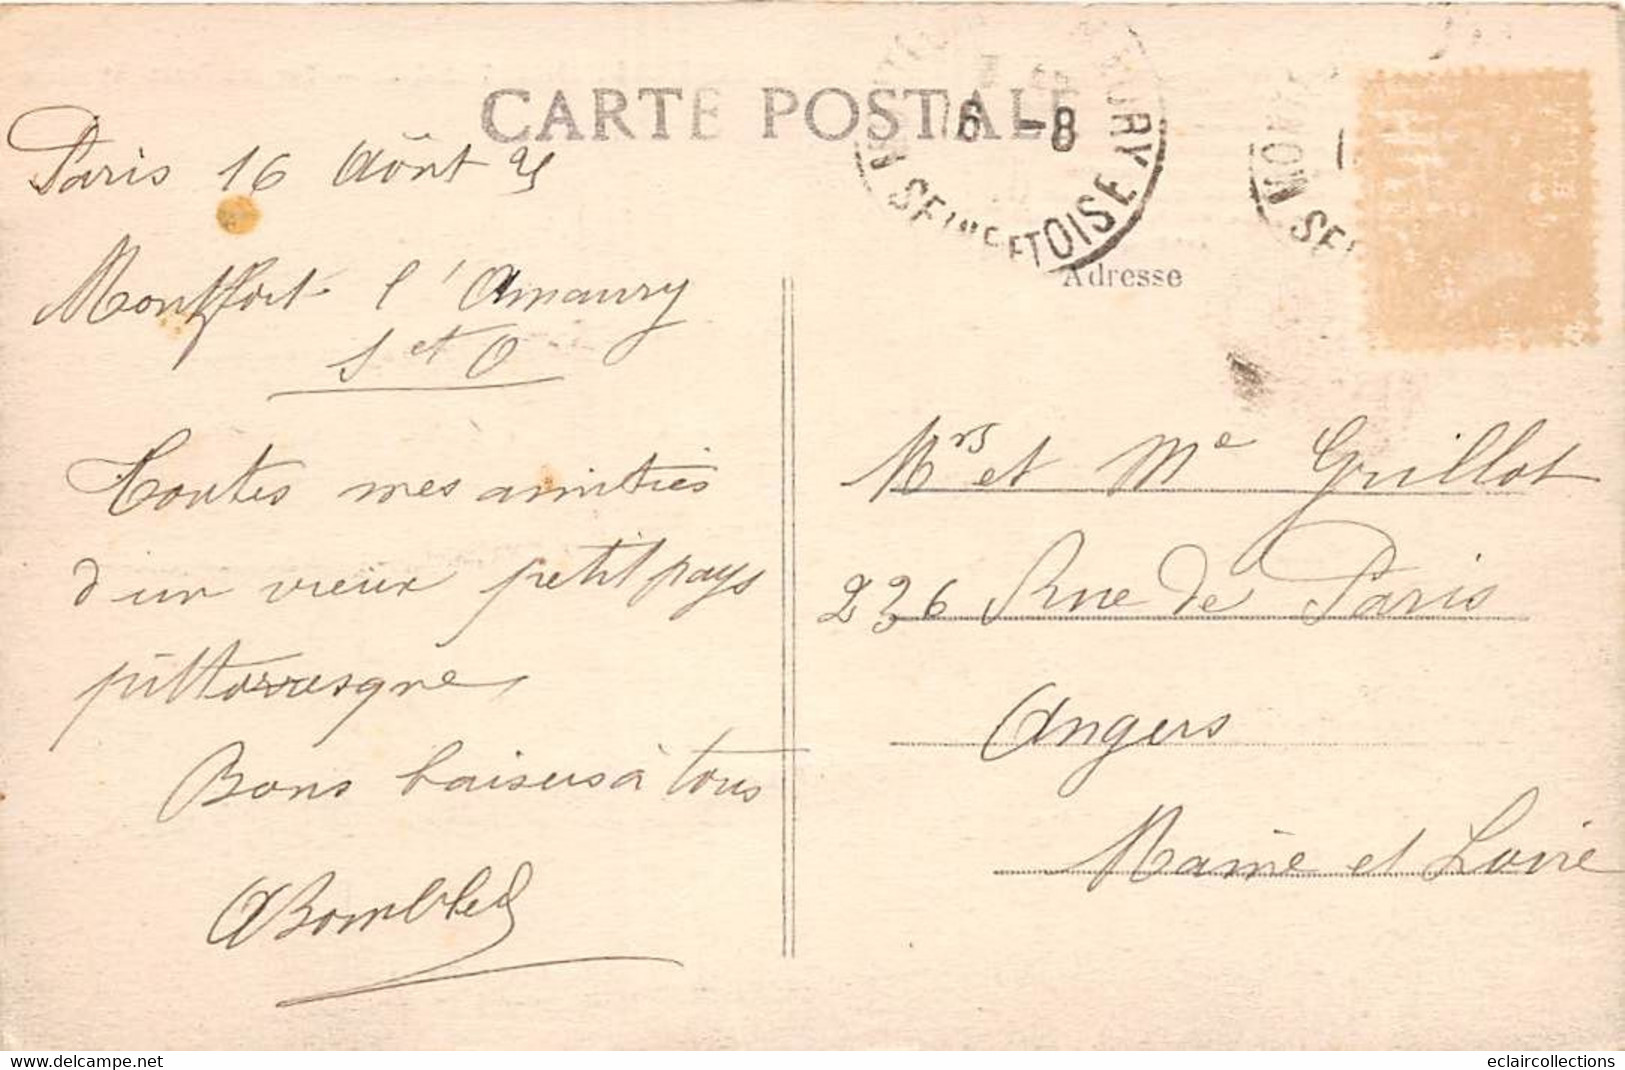 CARTE POSTALE
6 -8
SEINE ET OISE
Adresse
Paris 16 Août 25
Montfort l'Amaury
S et O
Toutes mes amitiés
d'un vieux petit pays
pittoresque
Bons baisers à tous
Mrs et Me Grillot
236 Rue de Paris
Angers
Maine et Loire
www.delcampe.net
eclaircollections